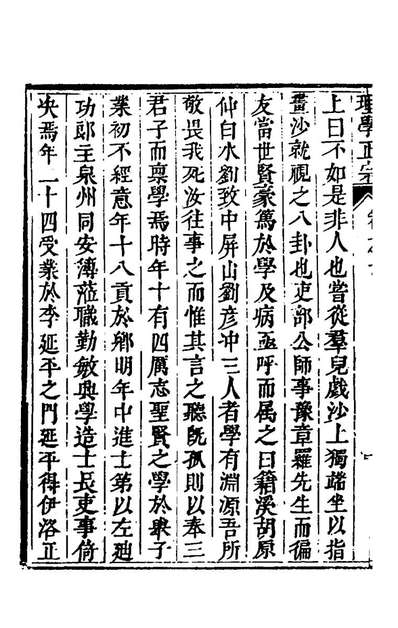 理學正宗 卷之
上曰不如是非人也嘗從羣兒戲沙上獨端坐以指
畫沙就視之八卦也吏部公師事豫章羅先生而徧
友當世賢豪篤於學及病亟呼而属之曰籍溪胡原
仲白水劉致中屏山劉彦冲三人者學有淵源吾所
敬畏我死汝往事之而惟其言之聽旣孤則以奉三
君子而稟學焉時年十有四厲志聖賢之學於舉子
業初不經意年十八貢於鄉明年中進士第以左廸
功郞主泉州同安簿蒞職勤敏興學造士長吏事倚
央焉年二十四受業於李延平之門延平得伊洛正